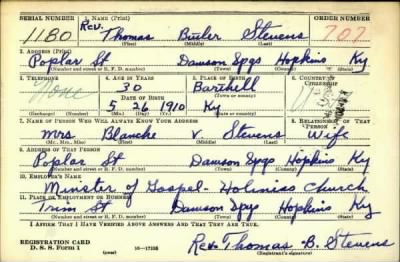 SERIAL NUMBER 1. NAME (Print) ORDER NUMBER
1180 Rev. Thomas Butler Stevens 707
(First) (Middle) (Last)
2. ADDRESS (Print)
Poplar St Dawson Spgs Hopkins Ky
(Number and street or R. F. D. number) (Town) (County) (State)
3. TELEPHONE 4. AGE IN YEARS 5. PLACE OF BIRTH 6. COUNTRY OF CITIZENSHIP
None 30 Barthell
DATE OF BIRTH (Town or county)
5 26 1910 Ky
(Exchange) (Number) (Mo.) (Day) (Yr.) (State or country)
7. NAME OF PERSON WHO WILL ALWAYS KNOW YOUR ADDRESS 8. RELATIONSHIP OF THAT PERSON
Mrs Blanche V. Stevens Wife
(Mr., Mrs., Miss) (First) (Middle) (Last)
9. ADDRESS OF THAT PERSON
Poplar St Dawson Spgs Hopkins Ky
(Number and street or R. F. D. number) (Town) (County) (State)
10. EMPLOYER'S NAME
Minister of Gospel - Holiniss Church
11. PLACE OF EMPLOYMENT OR BUSINESS
Trim St Dawson Spgs Hopkins Ky
(Number and street or R. F. D. number) (Town) (County) (State)
I AFFIRM THAT I HAVE VERIFIED ABOVE ANSWERS AND THAT THEY ARE TRUE.
REGISTRATION CARD
D. S. S. Form 1 (over) 16—17105 Rev. Thomas B. Stevens
(Registrant's signature)